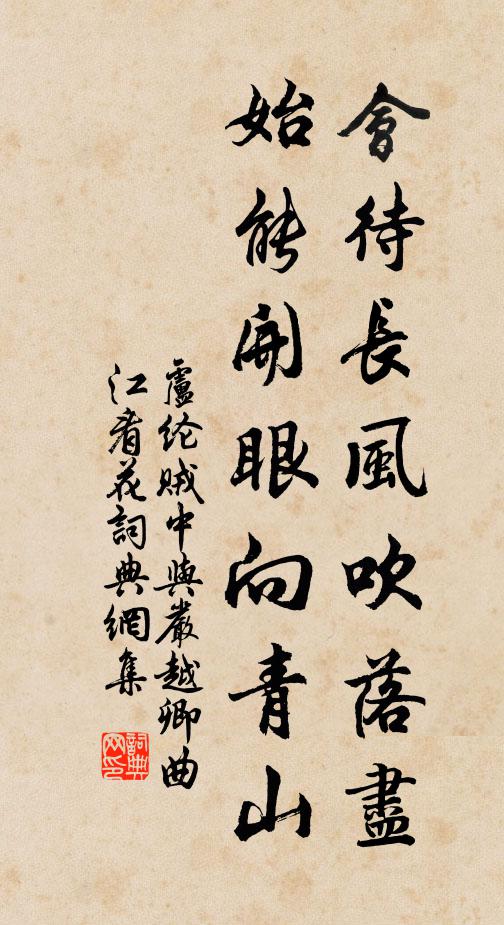 會待長風吹落盡
始能開眼向青山
盧纶贼中與嚴越卿曲
江看花詞典網集
詞典
网印